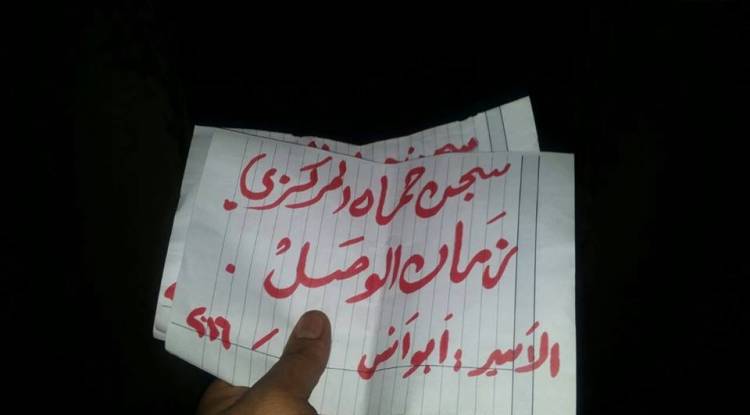 سجن حماه المركزي.
زمان الوصل.
الأسير: أبو أنس / ٢٠١٦